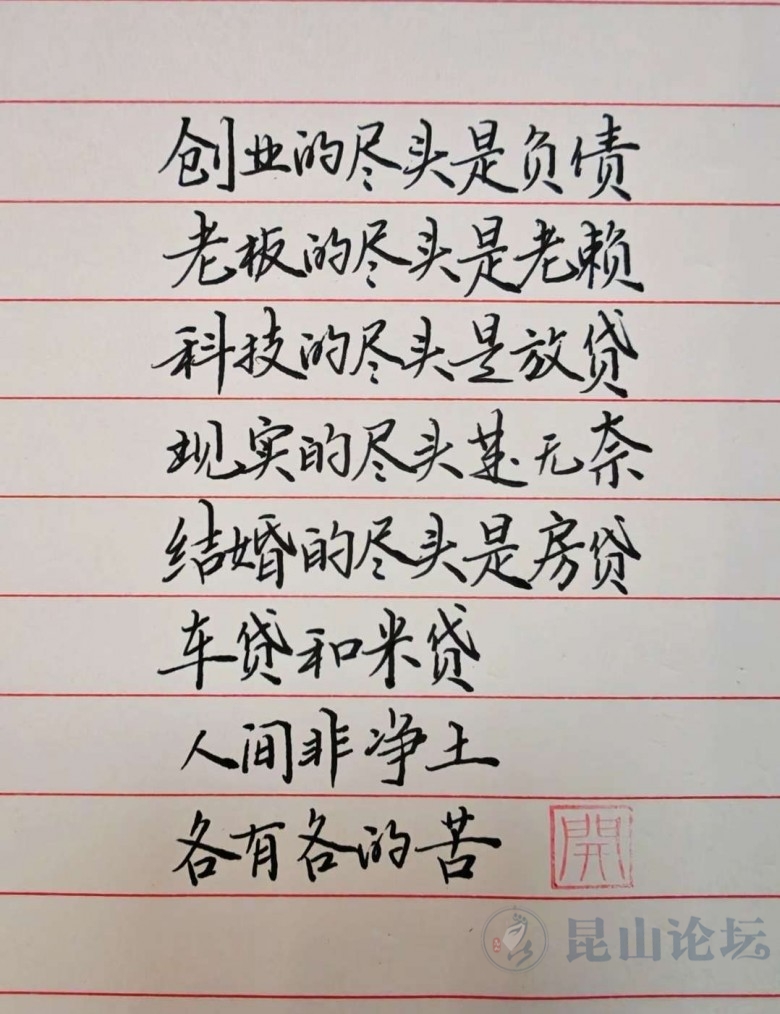 创业的尽头是负债
老板的尽头是老赖
科技的尽头是放贷
现实的尽头是无奈
结婚的尽头是房贷
车贷和米贷
人间非净土
各有各的苦
開
昆山论坛